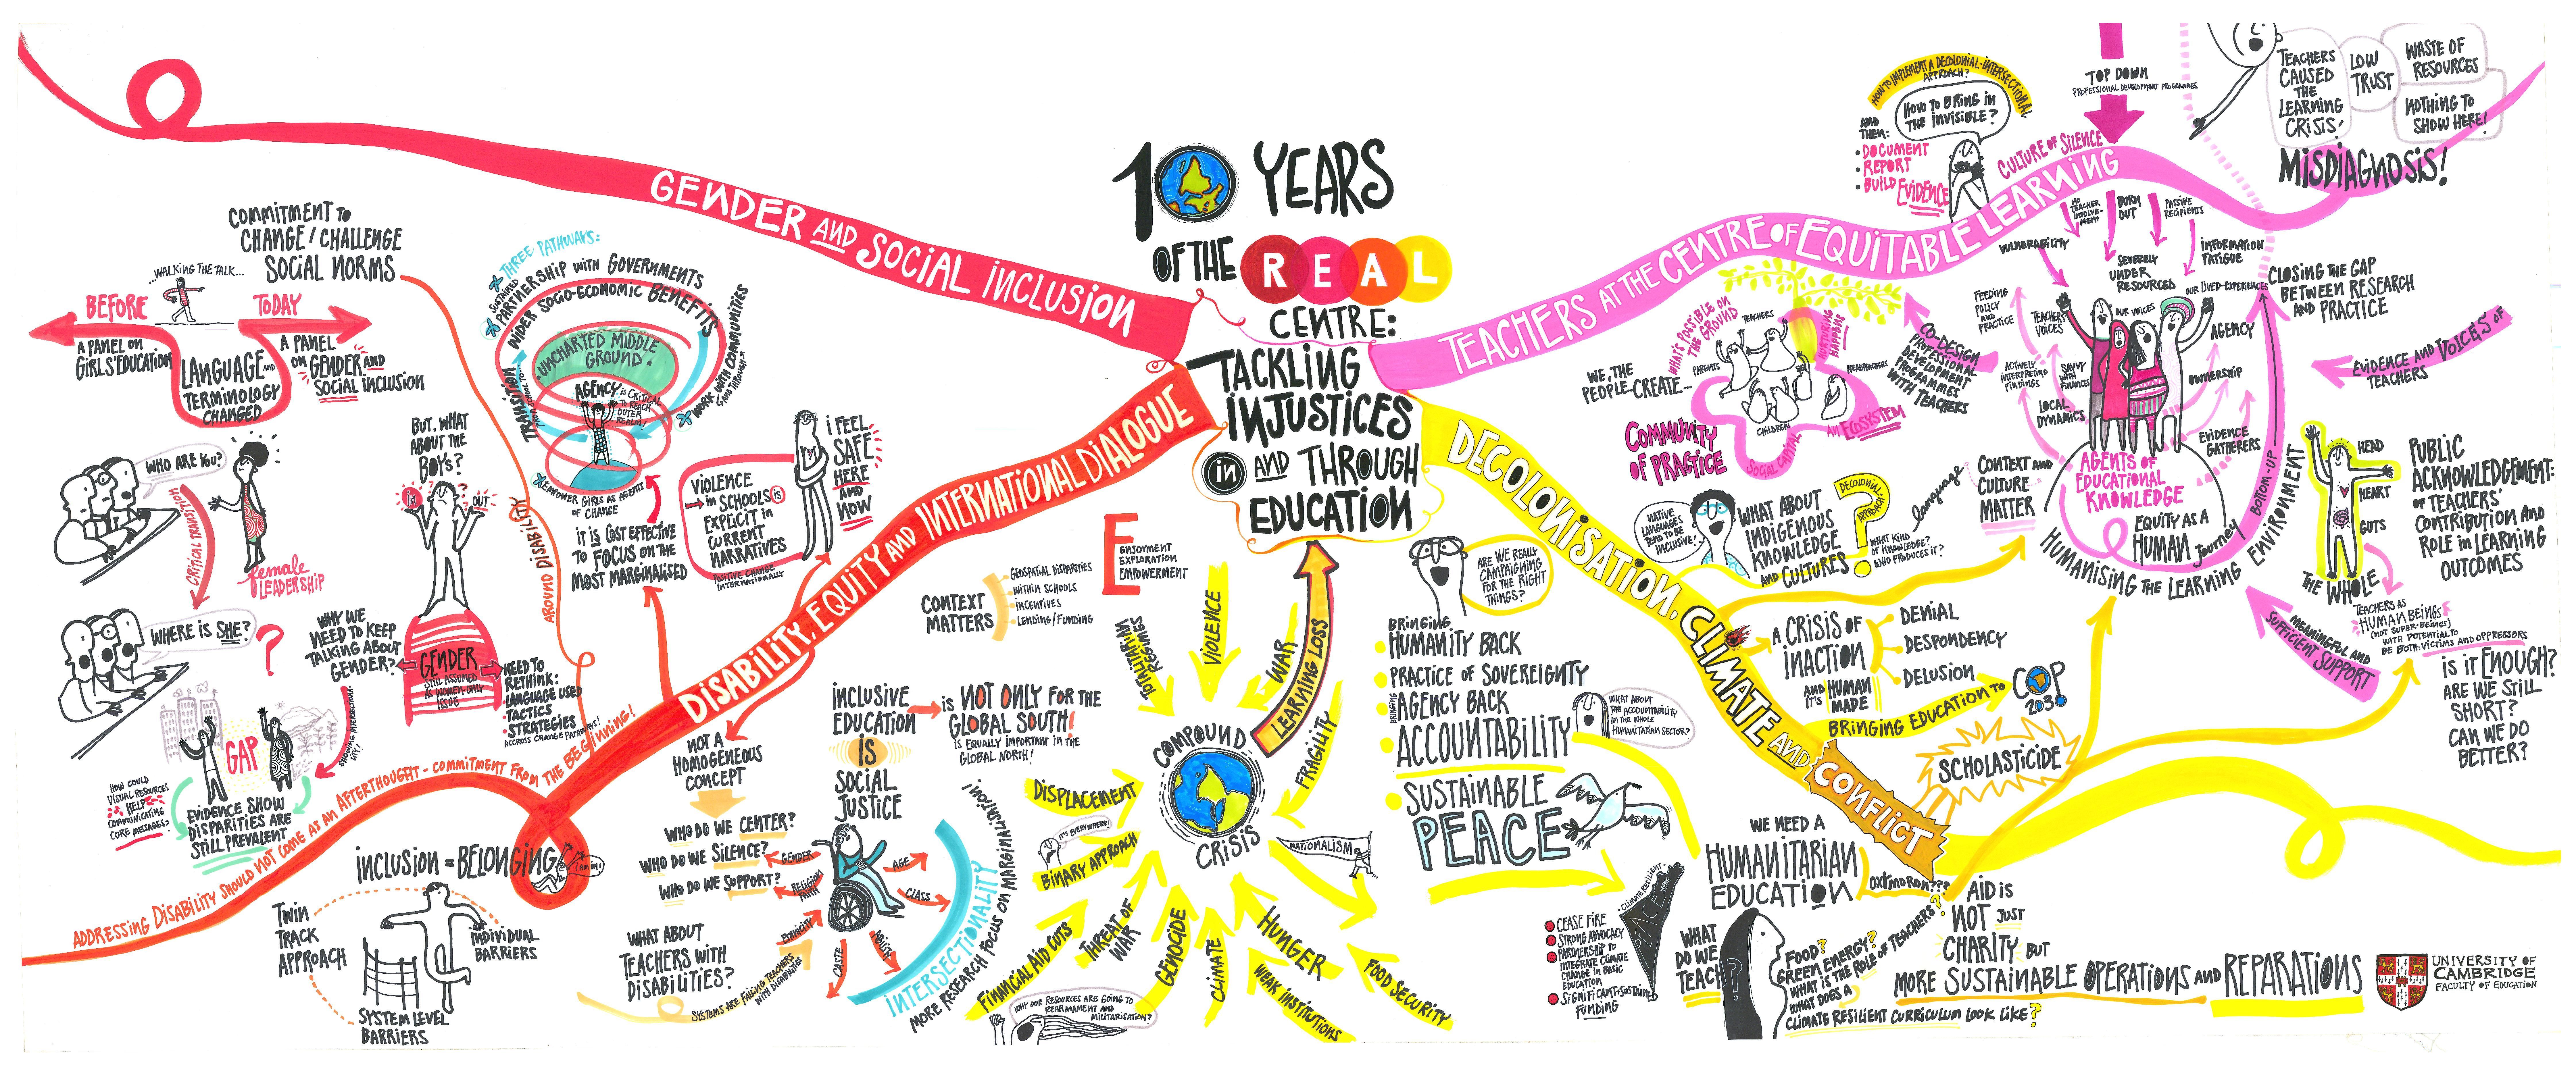 10 YEARS
OF THE REAL
CENTRE:
TACKLING
INJUSTICES
IN AND THROUGH
EDUCATION
GENDER AND SOCIAL INCLUSION
COMMITMENT TO
CHANGE / CHALLENGE
SOCIAL NORMS
WALKING THE TALK...
BEFORE
TODAY
A PANEL ON
GIRLS' EDUCATION
LANGUAGE AND
TERMINOLOGY
CHANGED
A PANEL
ON GENDER AND
SOCIAL INCLUSION
WHO ARE YOU?
CRITICAL TRANSITION
FEMALE
LEADERSHIP
WHERE IS SHE?
?
WHY WE
NEED TO KEEP
TALKING ABOUT
GENDER?
BUT, WHAT
ABOUT THE
BOYS?
IN
OUT
GENDER
STILL ASSUMED
AS WOMEN-ONLY
ISSUE
NEED TO
RETHINK:
LANGUAGE USED
TACTICS
STRATEGIES
ACCROSS CHANGE PATHWAYS!
GAP
HOW COULD
VISUAL RESOURCES
HELP
COMMUNICATING
CORE MESSAGES?
EVIDENCE SHOW
DISPARITIES ARE
STILL PREVALENT
THREE PATHWAYS:
SUSTAINED
PARTNERSHIP WITH GOVERNMENTS
WIDER SOCIO-ECONOMIC BENEFITS
UNCHARTED MIDDLE
GROUND!
AGENCY IS CRITICAL
TO REACH
OUTER
REALM!
TRANSITION
WORK WITH COMMUNITIES
EMPOWER GIRLS AS AGENTS
OF CHANGE
IT IS COST EFFECTIVE
TO FOCUS ON THE
MOST MARGINALISED
VIOLENCE
IN SCHOOLS IS
EXPLICIT IN
CURRENT
NARRATIVES
POSITIVE CHANGE
INTERNATIONALLY
I FEEL
SAFE
HERE
AND
NOW
AROUND DISABILITY
DISABILITY, EQUITY AND INTERNATIONAL DIALOGUE
ADDRESSING DISABILITY SHOULD NOT COME AS AN AFTERTHOUGHT - COMMITMENT FROM THE BEGINNING!
INCLUSION = BELONGING
I AM IN!
TWIN
TRACK
APPROACH
INDIVIDUAL
BARRIERS
SYSTEM LEVEL
BARRIERS
NOT A
HOMOGENEOUS
CONCEPT
WHO DO WE CENTER?
WHO DO WE SILENCE?
WHO DO WE SUPPORT?
WHAT ABOUT
TEACHERS WITH
DISABILITIES?
SYSTEMS ARE FAILING TEACHERS
WITH DISABILITIES
INCLUSIVE
EDUCATION
IS
SOCIAL
JUSTICE
IS NOT ONLY FOR THE
GLOBAL SOUTH!
IS EQUALLY IMPORTANT IN THE
GLOBAL NORTH!
GENDER
RELIGION
FAITH
ETHNICITY
CASTE
AGE
CLASS
INTERSECTIONALITY
MORE RESEARCH FOCUS ON MARGINALISATION!
CONTEXT
MATTERS
GEOSPATIAL DISPARITIES
WITHIN SCHOOLS
INCENTIVES
LENDING/FUNDING
E
ENJOYMENT
EXPLORATION
EMPOWERMENT
COMPOUND
CRISIS
TOTALITARIAN
REGIMES
VIOLENCE
WAR
LEARNING LOSS
FRAGILITY
NATIONALISM
DISPLACEMENT
IT'S EVERYWHERE!
BINARY APPROACH
FINANCIAL AID CUTS
THREAT OF
WAR
GENOCIDE
CLIMATE
HUNGER
WEAK INSTITUTIONS
FOOD SECURITY
WHY OUR RESOURCES ARE GOING TO
REARMAMENT AND
MILITARISATION?
TEACHERS AT THE CENTRE OF EQUITABLE LEARNING
HOW TO IMPLEMENT A DECOLONIAL-INTERSECTIONAL
APPROACH?
HOW TO BRING IN
THE INVISIBLE?
AND
THEN:
DOCUMENT
REPORT
BUILD EVIDENCE
CULTURE OF SILENCE
TOP DOWN
PROFESSIONAL DEVELOPMENT PROGRAMMES
TEACHERS
CAUSED
THE
LEARNING
CRISIS!
LOW
TRUST
WASTE OF
RESOURCES
NOTHING TO
SHOW HERE!
MISDIAGNOSIS!
NO
TEACHER
INVOLVE-
MENT
BURN
OUT
PASSIVE
RECIPIENTS
VULNERABILITY
SEVERELY
UNDER
RESOURCED
INFORMATION
FATIGUE
OUR LIVED-EXPERIENCES
CLOSING THE GAP
BETWEEN RESEARCH
AND PRACTICE
FEEDING
POLICY
AND
PRACTICE
TEACHERS'
VOICES
OUR VOICES
AGENCY
ACTIVELY
INTERPRETING
FINDINGS
SAVVY
WITH
FINANCES
OWNERSHIP
LOCAL
DYNAMICS
EVIDENCE
GATHERERS
AGENTS OF
EDUCATIONAL
KNOWLEDGE
EQUITY AS A
HUMAN JOURNEY
BOTTOM-UP
HUMANISING THE LEARNING ENVIRONMENT
EVIDENCE AND VOICES OF
TEACHERS
HEAD
HEART
GUTS
THE WHOLE
PUBLIC
ACKNOWLEDGEMENT:
OF TEACHERS'
CONTRIBUTION AND
ROLE IN LEARNING
OUTCOMES
TEACHERS AS
HUMAN BEINGS
(NOT SUPER-BEINGS)
WITH POTENTIAL TO
BE BOTH: VICTIMS AND OPPRESSORS
MEANINGFUL AND
SUFFICIENT SUPPORT
IS IT ENOUGH?
ARE WE STILL
SHORT?
CAN WE DO
BETTER?
WE, THE
PEOPLE-CREATE...
WHAT'S POSSIBLE ON
THE GROUND
TEACHERS
PARENTS
NURTURING
HAPPENS
HEADTEACHERS
CHILDREN
SOCIAL CAPITAL
AN ECOSYSTEM
COMMUNITY
OF PRACTICE
CO-DESIGN
PROFESSIONAL
DEVELOPMENT
PROGRAMMES
WITH TEACHERS
NATIVE
LANGUAGES
TEND TO BE
INCLUSIVE!
WHAT ABOUT
INDIGENOUS
KNOWLEDGE
AND CULTURES
DECOLONIAL
APPROACH
?
WHAT KIND
OF KNOWLEDGE?
WHO PRODUCES IT?
LANGUAGE
CONTEXT AND
CULTURE
MATTER
DECOLONISATION, CLIMATE AND CONFLICT
ARE WE REALLY
CAMPAIGNING
FOR THE RIGHT
THINGS?
BRINGING
HUMANITY BACK
PRACTICE OF SOVEREIGNTY
BRINGING
AGENCY BACK
ACCOUNTABILITY
SUSTAINABLE
PEACE
WHAT ABOUT
THE ACCOUNTABILITY
IN THE WHOLE
HUMANITARIAN SECTOR?
A CRISIS OF
INACTION
AND
IT'S
HUMAN
MADE
DENIAL
DESPONDENCY
DELUSION
BRINGING EDUCATION TO
COP
2030
SCHOLASTICIDE
WE NEED A
HUMANITARIAN
EDUCATION
OXYMORON???
CLIMATE RESILIENT
PEACE
CEASE FIRE
STRONG ADVOCACY
PARTNERSHIP TO
INTEGRATE CLIMATE
CHANGE IN BASIC
EDUCATION
SIGNIFICANT+SUSTAINED
FUNDING
WHAT
DO WE
TEACH
?
FOOD?
GREEN ENERGY?
WHAT IS THE ROLE OF TEACHERS?
WHAT DOES A
CLIMATE RESILIENT CURRICULUM LOOK LIKE?
AID IS
NOT JUST
CHARITY BUT
MORE SUSTAINABLE OPERATIONS AND REPARATIONS
UNIVERSITY OF
CAMBRIDGE
FACULTY OF EDUCATION